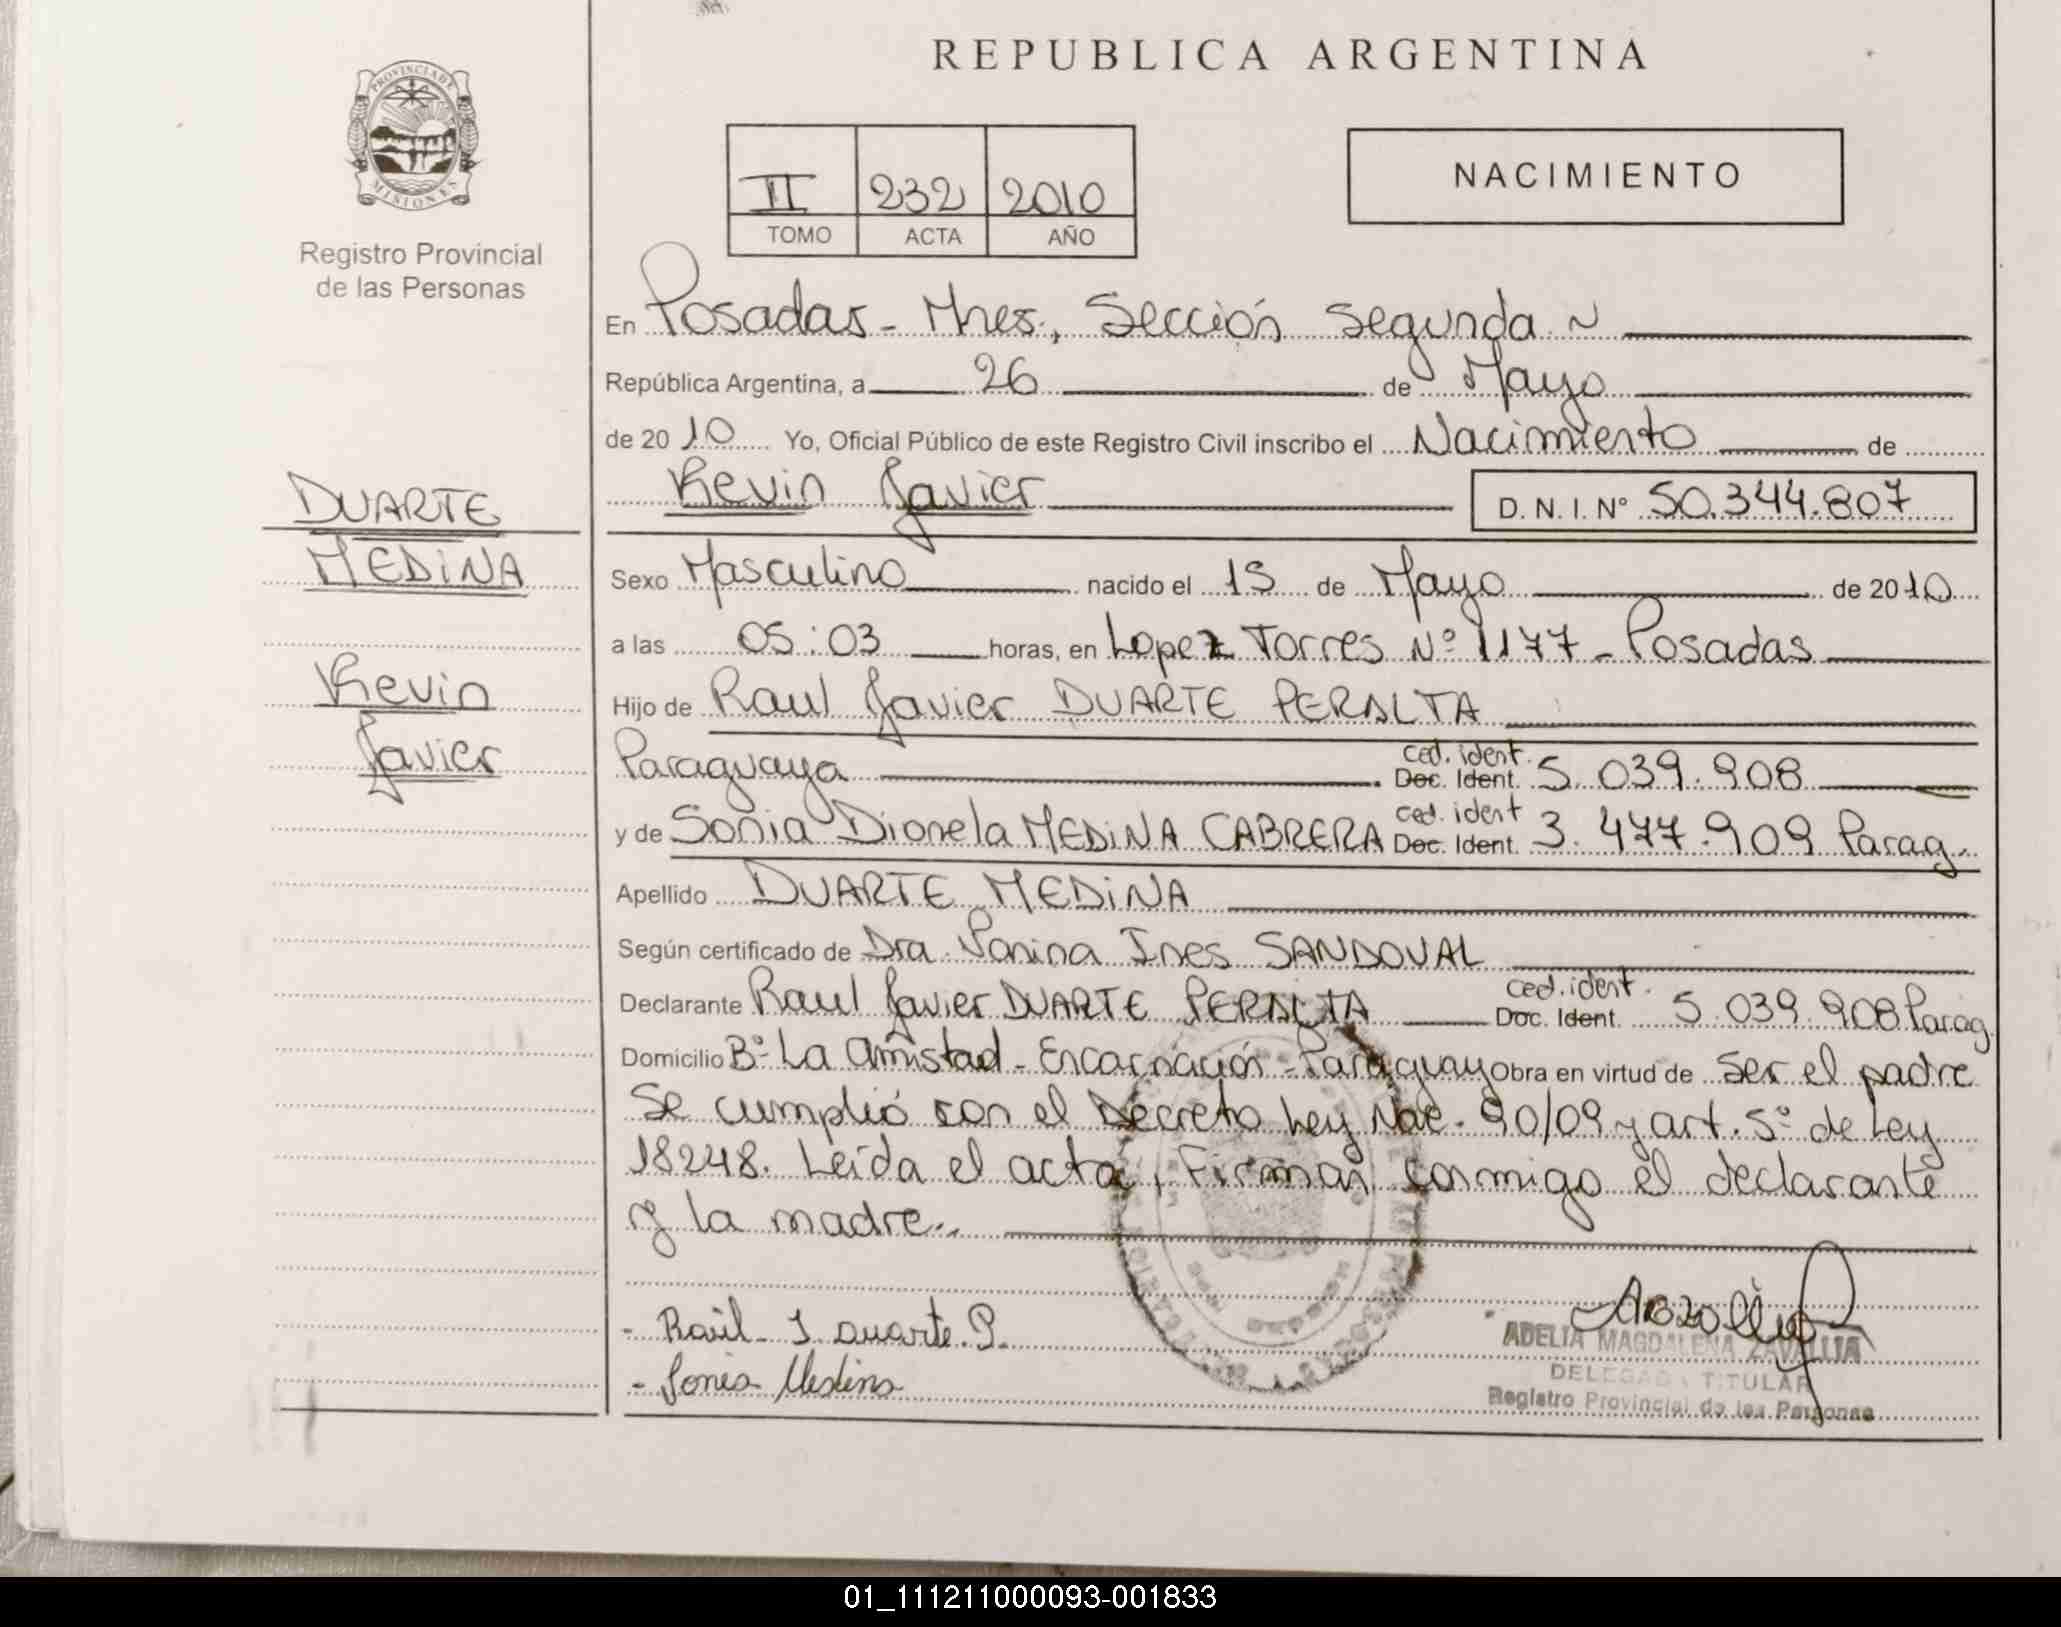 REPUBLICA ARGENTINA
PROVINCIA DE
MISIONES
Registro Provincial
de las Personas
II 232 2010
TOMO ACTA AÑO
NACIMIENTO
En Posadas - Mnes., Sección Segunda ~
República Argentina, a 26 de Mayo
de 2010 Yo, Oficial Público de este Registro Civil inscribo el Nacimiento de
Kevin Javier D. N. I. N° 50.344.807
DUARTE
MEDINA
Kevin
Javier
Sexo Masculino nacido el 15 de Mayo de 2010
a las 05:03 horas, en Lopez Torres Nº 1177 - Posadas
Hijo de Raul Javier DUARTE PERALTA
Paraguaya ced. ident. Doc. Ident. 5.039.908
y de Sonia Dionela MEDINA CABRERA ced. ident Doc. Ident. 3.477.909 Parag.
Apellido DUARTE MEDINA
Según certificado de Dra. Yanina Ines SANDOVAL
Declarante Raul Javier DUARTE PERALTA ced. ident. Doc. Ident. 5.039.908 Parag.
Domicilio Bº La Amistad - Encarnación - Paraguay Obra en virtud de ser el padre
Se cumplió con el Decreto Ley Nac. 90/09 y art. 5º de Ley
18248. Leída el acta, Firman conmigo el declarante
y la madre..
- Raúl J Duarte. P.
- Sonia Medina
ADELIA MAGDALENA ZAVALLIA
DELEGADA TITULAR
Registro Provincial de las Personas
01_111211000093-001833